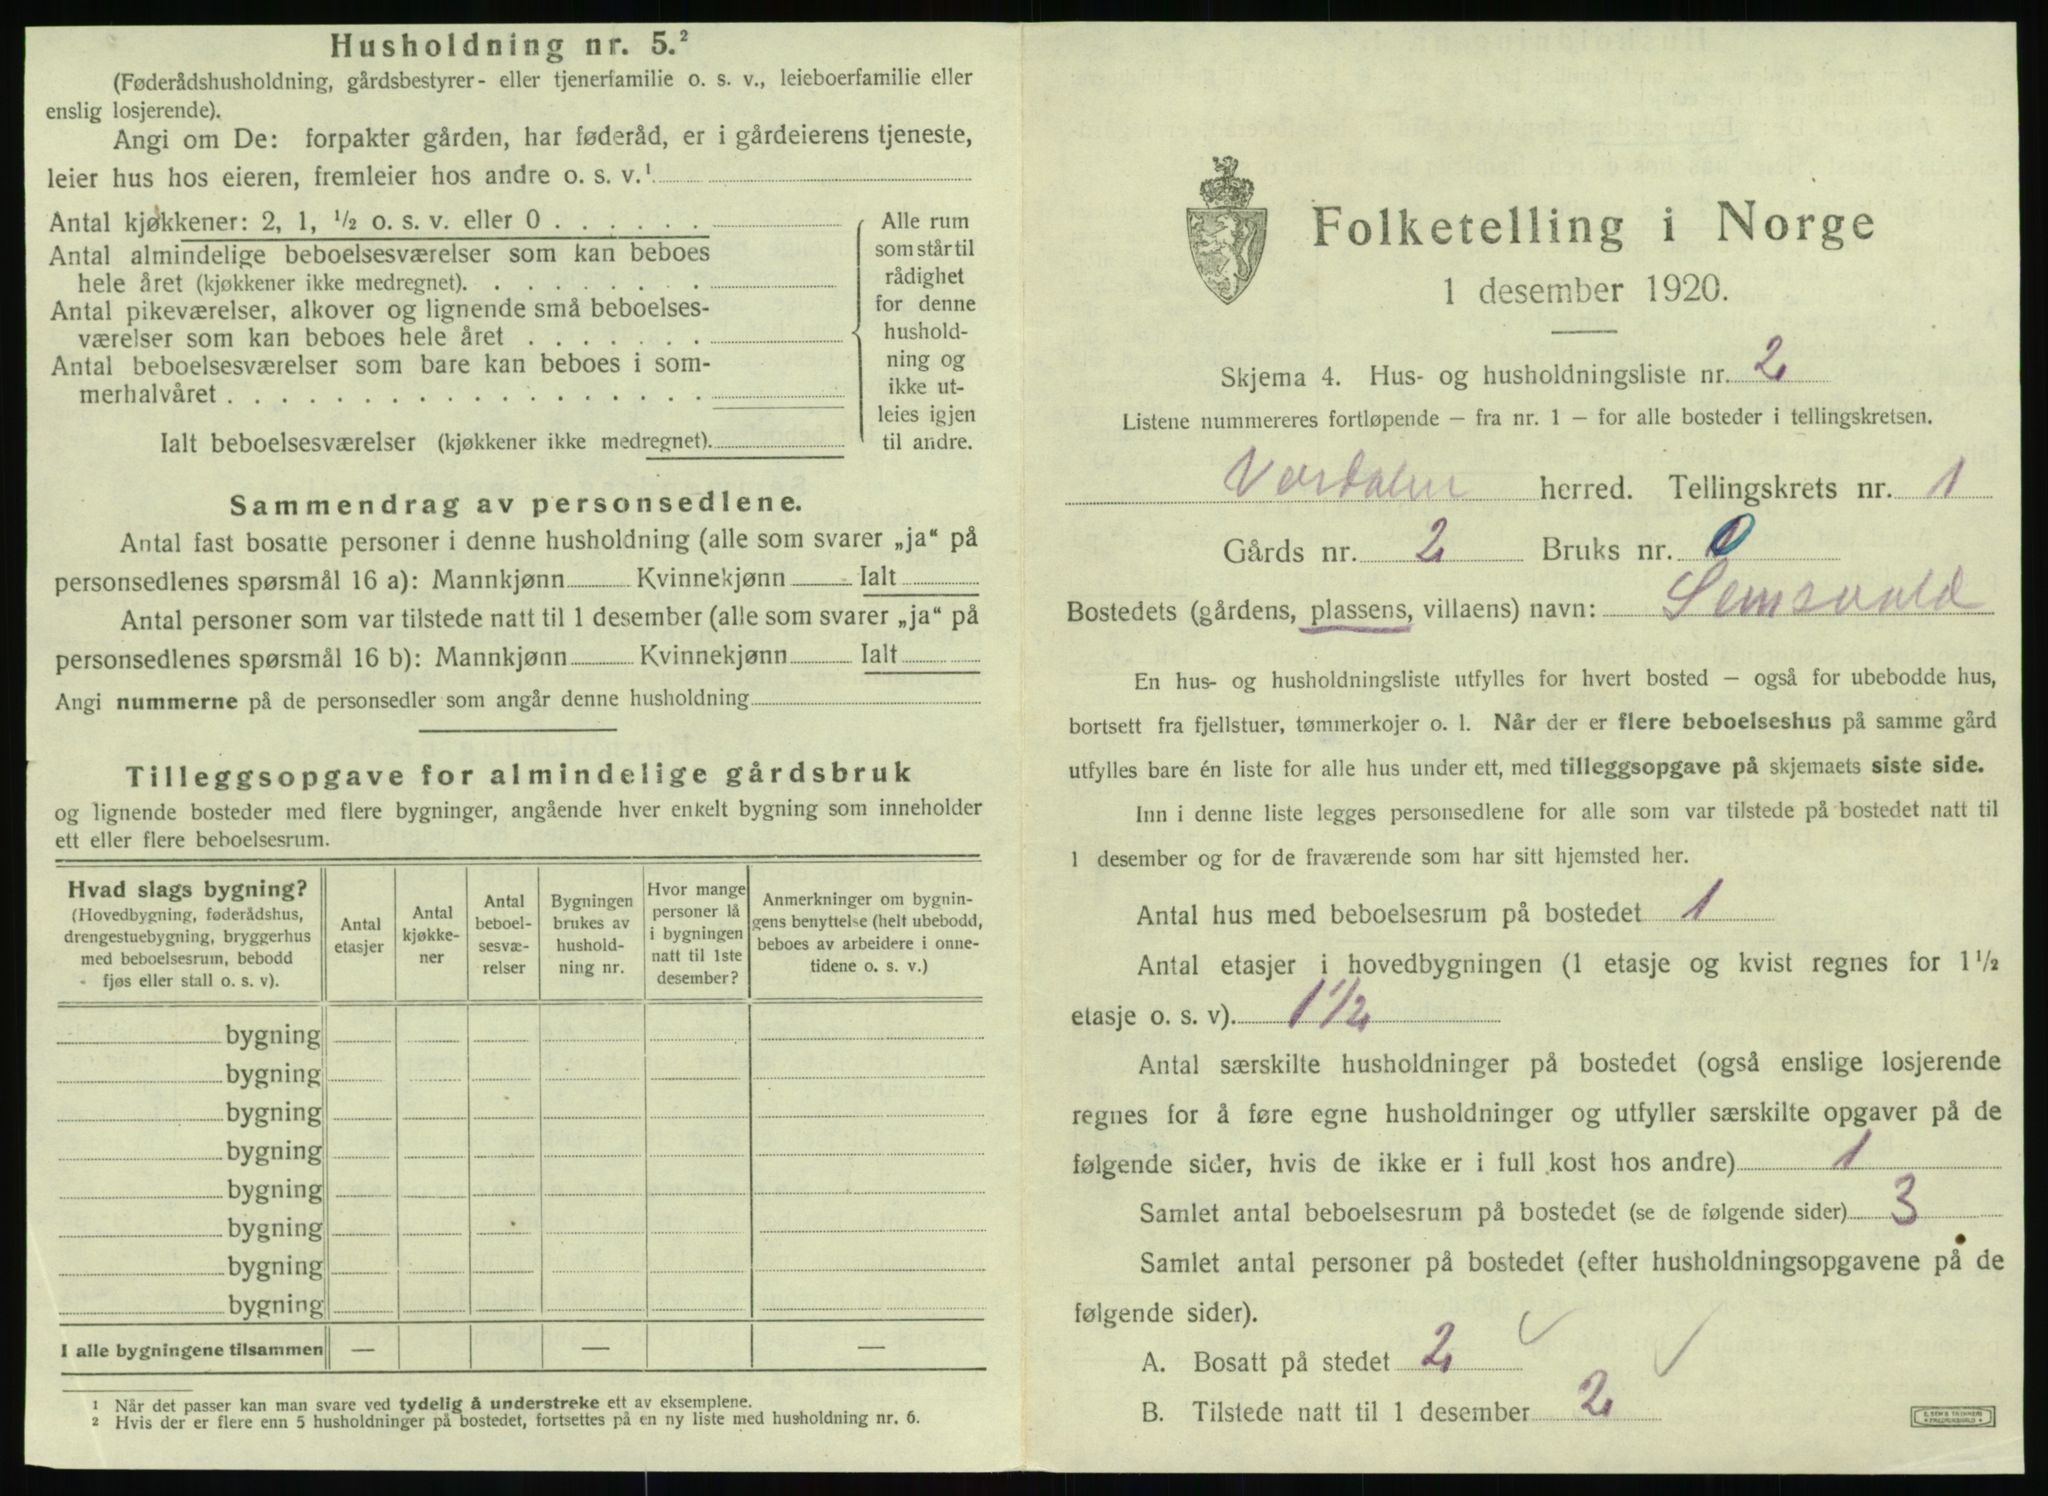 Husholdning nr. 5.²
(Føderådshusholdning, gårdsbestyrer- eller tjenerfamilie o. s. v., leieboerfamilie eller
enslig losjerende).
Angi om De: forpakter gården, har føderåd, er i gårdeierens tjeneste,
leier hus hos eieren, fremleier hos andre o. s. v.¹
Antal kjøkkener: 2, 1, ½ o. s. v. eller 0 . . . . . .
Antal almindelige beboelsesværelser som kan beboes
hele året (kjøkkener ikke medregnet). . . . . . . . .
Antal pikeværelser, alkover og lignende små beboelses-
værelser som kan beboes hele året . . . . . . .
Antal beboelsesværelser som bare kan beboes i som-
merhalvåret . . . . . . . . . . . . . . . . . .
Ialt beboelsesværelser (kjøkkener ikke medregnet).
Alle rum
som står til
rådighet
for denne
hushold-
ning og
ikke ut-
leies igjen
til andre.
Sammendrag av personsedlene.
Antal fast bosatte personer i denne husholdning (alle som svarer „ja“ på
personsedlenes spørsmål 16 a): Mannkjønn Kvinnekjønn Ialt
Antal personer som var tilstede natt til 1 desember (alle som svarer „ja“ på
personsedlenes spørsmål 16 b): Mannkjønn Kvinnekjønn Ialt
Angi nummerne på de personsedler som angår denne husholdning
Tilleggsopgave for almindelige gårdsbruk
og lignende bosteder med flere bygninger, angående hver enkelt bygning som inneholder
ett eller flere beboelsesrum.
Hvad slags bygning?
(Hovedbygning, føderådshus,
drengestuebygning, bryggerhus
med beboelsesrum, bebodd
fjøs eller stall o. s. v).
Antal
etasjer
Antal
kjøkke-
ner
Antal
beboel-
sesvæ-
relser
Bygningen
brukes av
hushold-
ning nr.
Hvor mange
personer lå
i bygningen
natt til 1ste
desember?
Anmerkninger om bygnin-
gens benyttelse (helt ubebodd,
beboes av arbeidere i onne-
tidene o. s. v.)
bygning
bygning
bygning
bygning
bygning
bygning
bygning
bygning
I alle bygningene tilsammen — — —
¹ Når det passer kan man svare ved tydelig å understreke ett av eksemplene.
² Hvis der er flere enn 5 husholdninger på bostedet, fortsettes på en ny liste med husholdning nr. 6.
Folketelling i Norge
1 desember 1920.
Skjema 4. Hus- og husholdningsliste nr. 2
Listene nummereres fortløpende — fra nr. 1 — for alle bosteder i tellingskretsen.
Værdalen herred. Tellingskrets nr. 1
Gårds nr. 2 Bruks nr. 0
Bostedets (gårdens, plassens, villaens) navn: Semsvald
En hus- og husholdningsliste utfylles for hvert bosted — også for ubebodde hus,
bortsett fra fjellstuer, tømmerkojer o. l. Når der er flere beboelseshus på samme gård
utfylles bare én liste for alle hus under ett, med tilleggsopgave på skjemaets siste side.
Inn i denne liste legges personsedlene for alle som var tilstede på bostedet natt til
1 desember og for de fraværende som har sitt hjemsted her.
Antal hus med beboelsesrum på bostedet 1
Antal etasjer i hovedbygningen (1 etasje og kvist regnes for 1½
etasje o. s. v). 1½
Antal særskilte husholdninger på bostedet (også enslige losjerende
regnes for å føre egne husholdninger og utfyller særskilte opgaver på de
følgende sider, hvis de ikke er i full kost hos andre) 1
Samlet antal beboelsesrum på bostedet (se de følgende sider) 3
Samlet antal personer på bostedet (efter husholdningsopgavene på de
følgende sider).
A. Bosatt på stedet 2
B. Tilstede natt til 1 desember 2